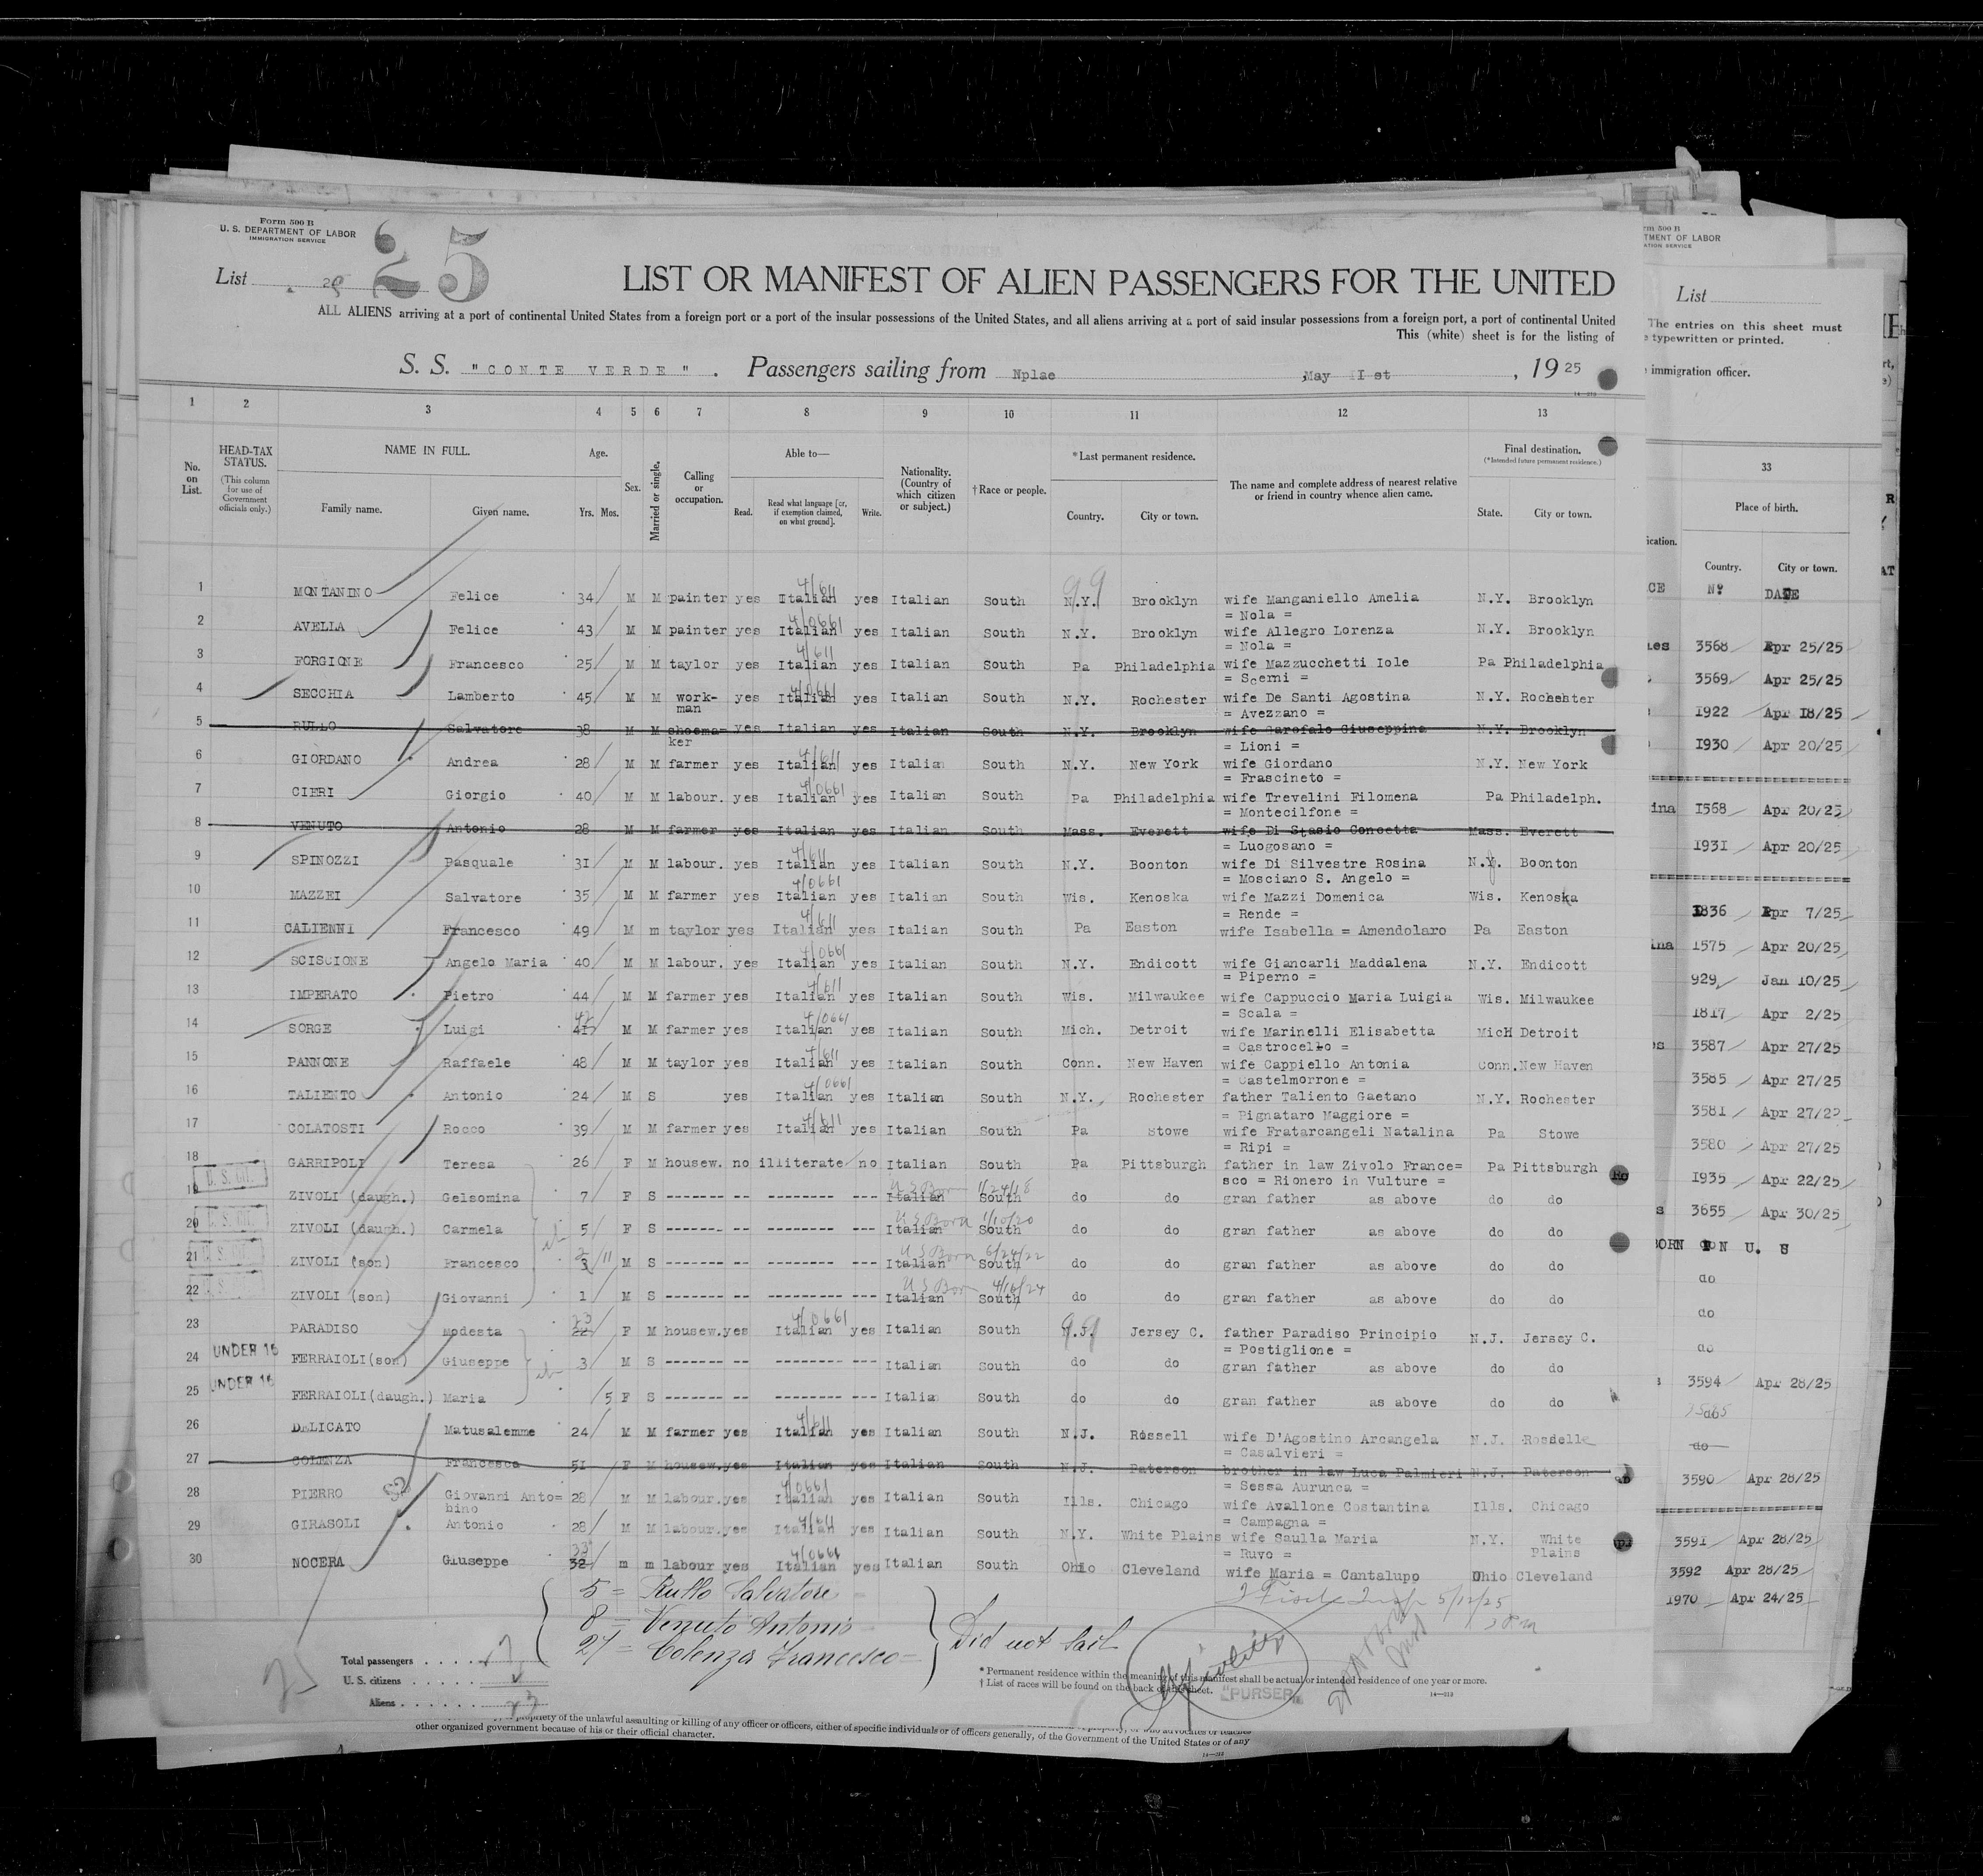 Form 500 B
U. S. DEPARTMENT OF LABOR
IMMIGRATION SERVICE
List 25
LIST OR MANIFEST OF ALIEN PASSENGERS FOR THE UNITED
ALL ALIENS arriving at a port of continental United States from a foreign port or a port of the insular possessions of the United States, and all aliens arriving at a port of said insular possessions from a foreign port, a port of continental United
This (white) sheet is for the listing of
S. S. "CONTE VERDE". Passengers sailing from Nplae, May Ist, 1925
1 2 3 4 5 6 7 8 9 10 11 12 13
No. on List. HEAD-TAX STATUS. (This column for use of Government officials only.) NAME IN FULL. Family name. Given name. Age. Yrs. Mos. Sex. Married or single. Calling or occupation. Able to— Read. Read what language [or, if exemption claimed, on what ground]. Write. Nationality. (Country of which citizen or subject.) †Race or people. *Last permanent residence. Country. City or town. The name and complete address of nearest relative or friend in country whence alien came. Final destination. (*Intended future permanent residence.) State. City or town.
1 MONTANINO Felice 34 M M painter yes Italian yes Italian South N.Y. Brooklyn wife Manganiello Amelia N.Y. Brooklyn
= Nola =
2 AVELLA Felice 43 M M painter yes Italian yes Italian South N.Y. Brooklyn wife Allegro Lorenza N.Y. Brooklyn
= Nola =
3 FORGIONE Francesco 25 M M taylor yes Italian yes Italian South Pa Philadelphia wife Mazzucchetti Iole Pa Philadelphia
= Scerni =
4 SECCHIA Lamberto 45 M M work- yes Italian yes Italian South N.Y. Rochester wife De Santi Agostina N.Y. Rochester
man = Avezzano =
5 RULLO Salvatore 38 M M shoema- yes Italian yes Italian South N.Y. Brooklyn wife Garofalo Giuseppina N.Y. Brooklyn
ker = Lioni =
6 GIORDANO Andrea 28 M M farmer yes Italian yes Italian South N.Y. New York wife Giordano N.Y. New York
= Frascineto =
7 CIERI Giorgio 40 M M labour. yes Italian yes Italian South Pa Philadelphia wife Trevelini Filomena Pa Philadelph.
= Montecilfone =
8 VENUTO Antonio 28 M M farmer yes Italian yes Italian South Mass. Everett wife Di Stasio Concetta Mass. Everett
= Luogosano =
9 SPINOZZI Pasquale 31 M M labour. yes Italian yes Italian South N.Y. Boonton wife Di Silvestre Rosina N.J. Boonton
= Mosciano S. Angelo =
10 MAZZEI Salvatore 35 M M farmer yes Italian yes Italian South Wis. Kenoska wife Mazzi Domenica Wis. Kenoska
= Rende =
11 CALIENNI Francesco 49 M m taylor yes Italian yes Italian South Pa Easton wife Isabella = Amendolaro Pa Easton
12 SCISCIONE Angelo Maria 40 M M labour. yes Italian yes Italian South N.Y. Endicott wife Giancarli Maddalena N.Y. Endicott
= Piperno =
13 IMPERATO Pietro 44 M M farmer yes Italian yes Italian South Wis. Milwaukee wife Cappuccio Maria Luigia Wis. Milwaukee
= Scala =
14 SORGE Luigi 41 M M farmer yes Italian yes Italian South Mich. Detroit wife Marinelli Elisabetta MicH Detroit
= Castrocello =
15 PANNONE Raffaele 48 M M taylor yes Italian yes Italian South Conn. New Haven wife Cappiello Antonia Conn. New Haven
= Castelmorrone =
16 TALIENTO Antonio 24 M S yes Italian yes Italian South N.Y. Rochester father Taliento Gaetano N.Y. Rochester
= Pignataro Maggiore =
17 COLATOSTI Rocco 39 M M farmer yes Italian yes Italian South Pa Stowe wife Fratarcangeli Natalina Pa Stowe
= Ripi =
18 GARRIPOLI Teresa 26 F M housew. no illiterate no Italian South Pa Pittsburgh father in law Zivolo France= Pa Pittsburgh
sco = Rionero in Vulture =
U. S. CIT. 19 ZIVOLI (daugh.) Gelsomina 7 F S Italian South do do gran father as above do do
US Born 1/24/18
U. S. CIT. 20 ZIVOLI (daugh.) Carmela 5 F S Italian South do do gran father as above do do
US Born 1/10/20
U. S. CIT. 21 ZIVOLI (son) Francesco 3 2/11 M S Italian South do do gran father as above do do
US Born 6/24/22
22 ZIVOLI (son) Giovanni 1 M S Italian South do do gran father as above do do
US Born 4/16/24
23 PARADISO Modesta 22 23 F M housew. yes Italian yes Italian South N.J. Jersey C. father Paradiso Principio N.J. Jersey C.
= Postiglione =
UNDER 16 24 FERRAIOLI (son) Giuseppe 3 M S Italian South do do gran father as above do do
UNDER 16 25 FERRAIOLI (daugh.) Maria 5 F S Italian South do do gran father as above do do
26 DELICATO Matusalemme 24 M M farmer yes Italian yes Italian South N.J. Rossell wife D'Agostino Arcangela N.J. Roselle
= Casalvieri =
27 COLENZA Francesca 51 F M housew. yes Italian yes Italian South N.J. Paterson brother in law Luca Palmieri N.J. Paterson
= Sessa Aurunca =
28 PIERRO Giovanni Anto= 28 M M labour. yes Italian yes Italian South Ills. Chicago wife Avallone Costantina Ills. Chicago
bino = Campagna =
29 GIRASOLI Antonio 28 M M labour. yes Italian yes Italian South N.Y. White Plains wife Saulla Maria N.Y. White
= Ruvo = Plains
30 NOCERA Giuseppe 32 33 m m labour yes Italian yes Italian South Ohio Cleveland wife Maria = Cantalupo Ohio Cleveland
5 = Rullo Salvatore
8 = Venuto Antonio
27 = Colenza Francesco
Did not sail
5/12/25
Total passengers 27
U. S. citizens 4
Aliens 23
* Permanent residence within the meaning of this manifest shall be actual or intended residence of one year or more.
† List of races will be found on the back of this sheet.
PURSER
propriety of the unlawful assaulting or killing of any officer or officers, either of specific individuals or of officers generally, of the Government of the United States or of any
other organized government because of his or their official character.
rm 500 B
TMENT OF LABOR
ATION SERVICE
List
The entries on this sheet must
typewritten or printed.
immigration officer.
33
Place of birth.
Country. City or town.
No DATE
3568 Apr 25/25
3569 Apr 25/25
1922 Apr 18/25
1930 Apr 20/25
1568 Apr 20/25
1931 Apr 20/25
1836 Apr 7/25
1575 Apr 20/25
929 Jan 10/25
1817 Apr 2/25
3587 Apr 27/25
3585 Apr 27/25
3581 Apr 27/25
3580 Apr 27/25
1935 Apr 22/25
3655 Apr 30/25
BORN IN U. S
do
do
do
3594 Apr 28/25
do
do
3590 Apr 28/25
3591 Apr 28/25
3592 Apr 28/25
1970 Apr 24/25